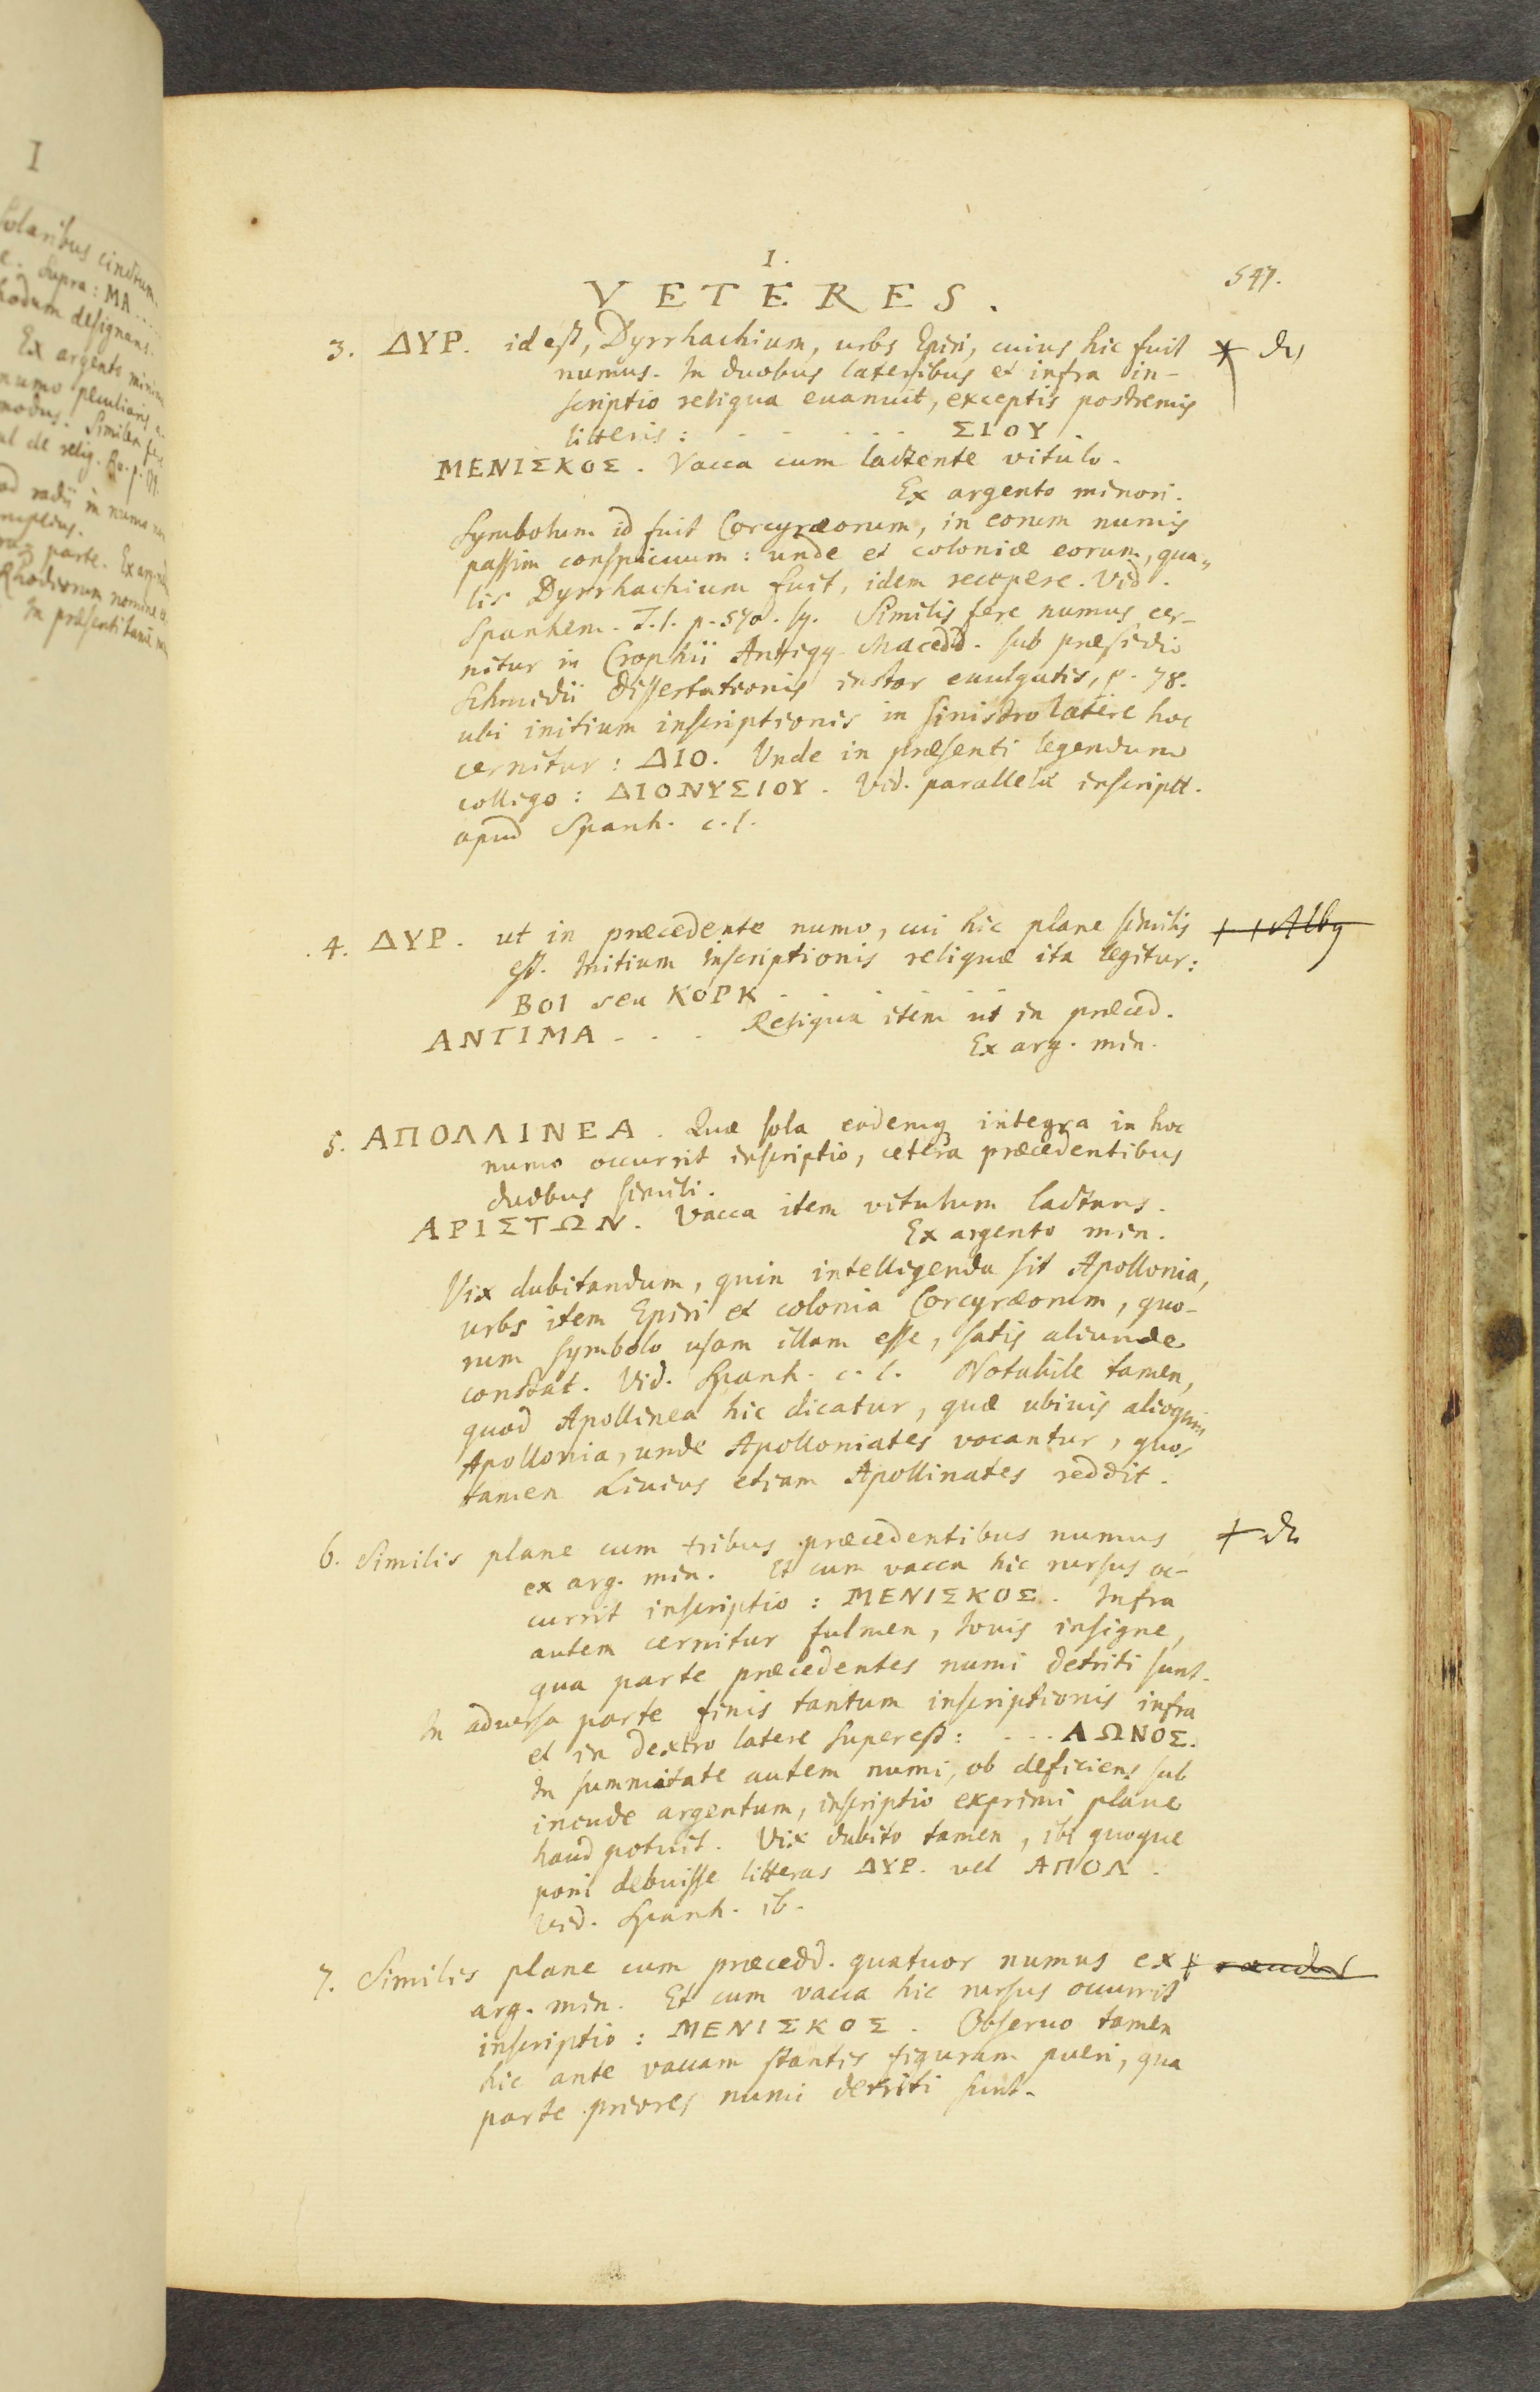 I
solaribus cinctum.
e. Supra: MA.....
hodum designans.
Ex argento minim
numo peculiaris
modus. Similem
ul de relig. Ro. p.
ad radii in numo
amplius.
parte. Ex arg.
Rhodiorum nomine
In præsenti tamē
I.
VETERES.
547.
3. ΔΥΡ. id est, Dyrrhachium, urbs Epiri, cuius hic fuit
numus. In duobus lateribus et infra in-
scriptio reliqua euanuit, exceptis postremis
litteris: - - - - - ΣΙΟΥ.
ΜΕΝΙΣΚΟΣ. Vacca cum lactente vitulo.
Ex argento minori.
Symbolum id fuit Corcyræorum, in eorum numis
passim conspicuum: unde et coloniæ eorum, qua-
lis Dyrrhachium fuit, idem recepere. Vid.
Spanhem. T.I. p. 570. sq. Similis fere numus cer-
nitur in Crophii Antiqq. Macedd. sub præsidio
Schmidii dissertationis instar euulgatis, p. 78.
ubi initium inscriptionis in sinistro latere hoc
cernitur: ΔΙΟ. Unde in præsenti legendum
colligo: ΔΙΟΝΥΣΙΟΥ. Vid. parallela inscriptt.
apud Spanh. c.l.
4. ΔΥΡ. ut in præcedente numo, cui hic plane similis
est. Initium inscriptionis reliquæ ita legitur:
ΒΟΙ seu ΚΟΡΚ - - - - - -
ΑΝΤΙΜΑ - - - Reliqua item ut in præced.
Ex arg. min.
5. ΑΠΟΛΛΙΝΕΑ. Quæ sola eademq integra in hoc
numo occurrit inscriptio, cetera præcedentibus
duobus simili.
ΑΡΙΣΤΩΝ. Vacca item vitulum lactans.
Ex argento min.
Vix dubitandum, quin intelligenda sit Apollonia,
urbs item Epiri et colonia Corcyræorum, quo-
rum symbolo usam illam esse, satis aliunde
constat. Vid. Spanh. c. l. Notabile tamen,
quod Apollinea hic dicatur, quæ ubiuis alioquin
Apollonia, unde Apolloniates vocantur, quos
tamen Liuius etiam Apollinates reddit.
6. Similis plane cum tribus præcedentibus numus
ex arg. min. Et cum vacca hic rursus oc-
currit inscriptio: ΜΕΝΙΣΚΟΣ. Infra
autem cernitur fulmen, Iouis insigne,
qua parte præcedentes numi detriti sunt.
In aduersa parte finis tantum inscriptionis infra
et in dextro latere superest: - - - ΛΩΝΟΣ.
In summitate autem numi, ob deficiens sub
incude argentum, inscriptio exprimi plane
haud potuit. Vix dubito tamen, ibi quoque
poni debuisse litteras ΔΥΡ. vel ΑΠΟΛ.
Vid. Spanh. ib.
7. Similis plane cum præcedd. quatuor numus ex
arg. min. Et cum vacca hic rursus occurrit
inscriptio: ΜΕΝΙΣΚΟΣ. Obseruo tamen
hic ante vaccam stantis figuram pueri, qua
parte priores numi detriti sunt.